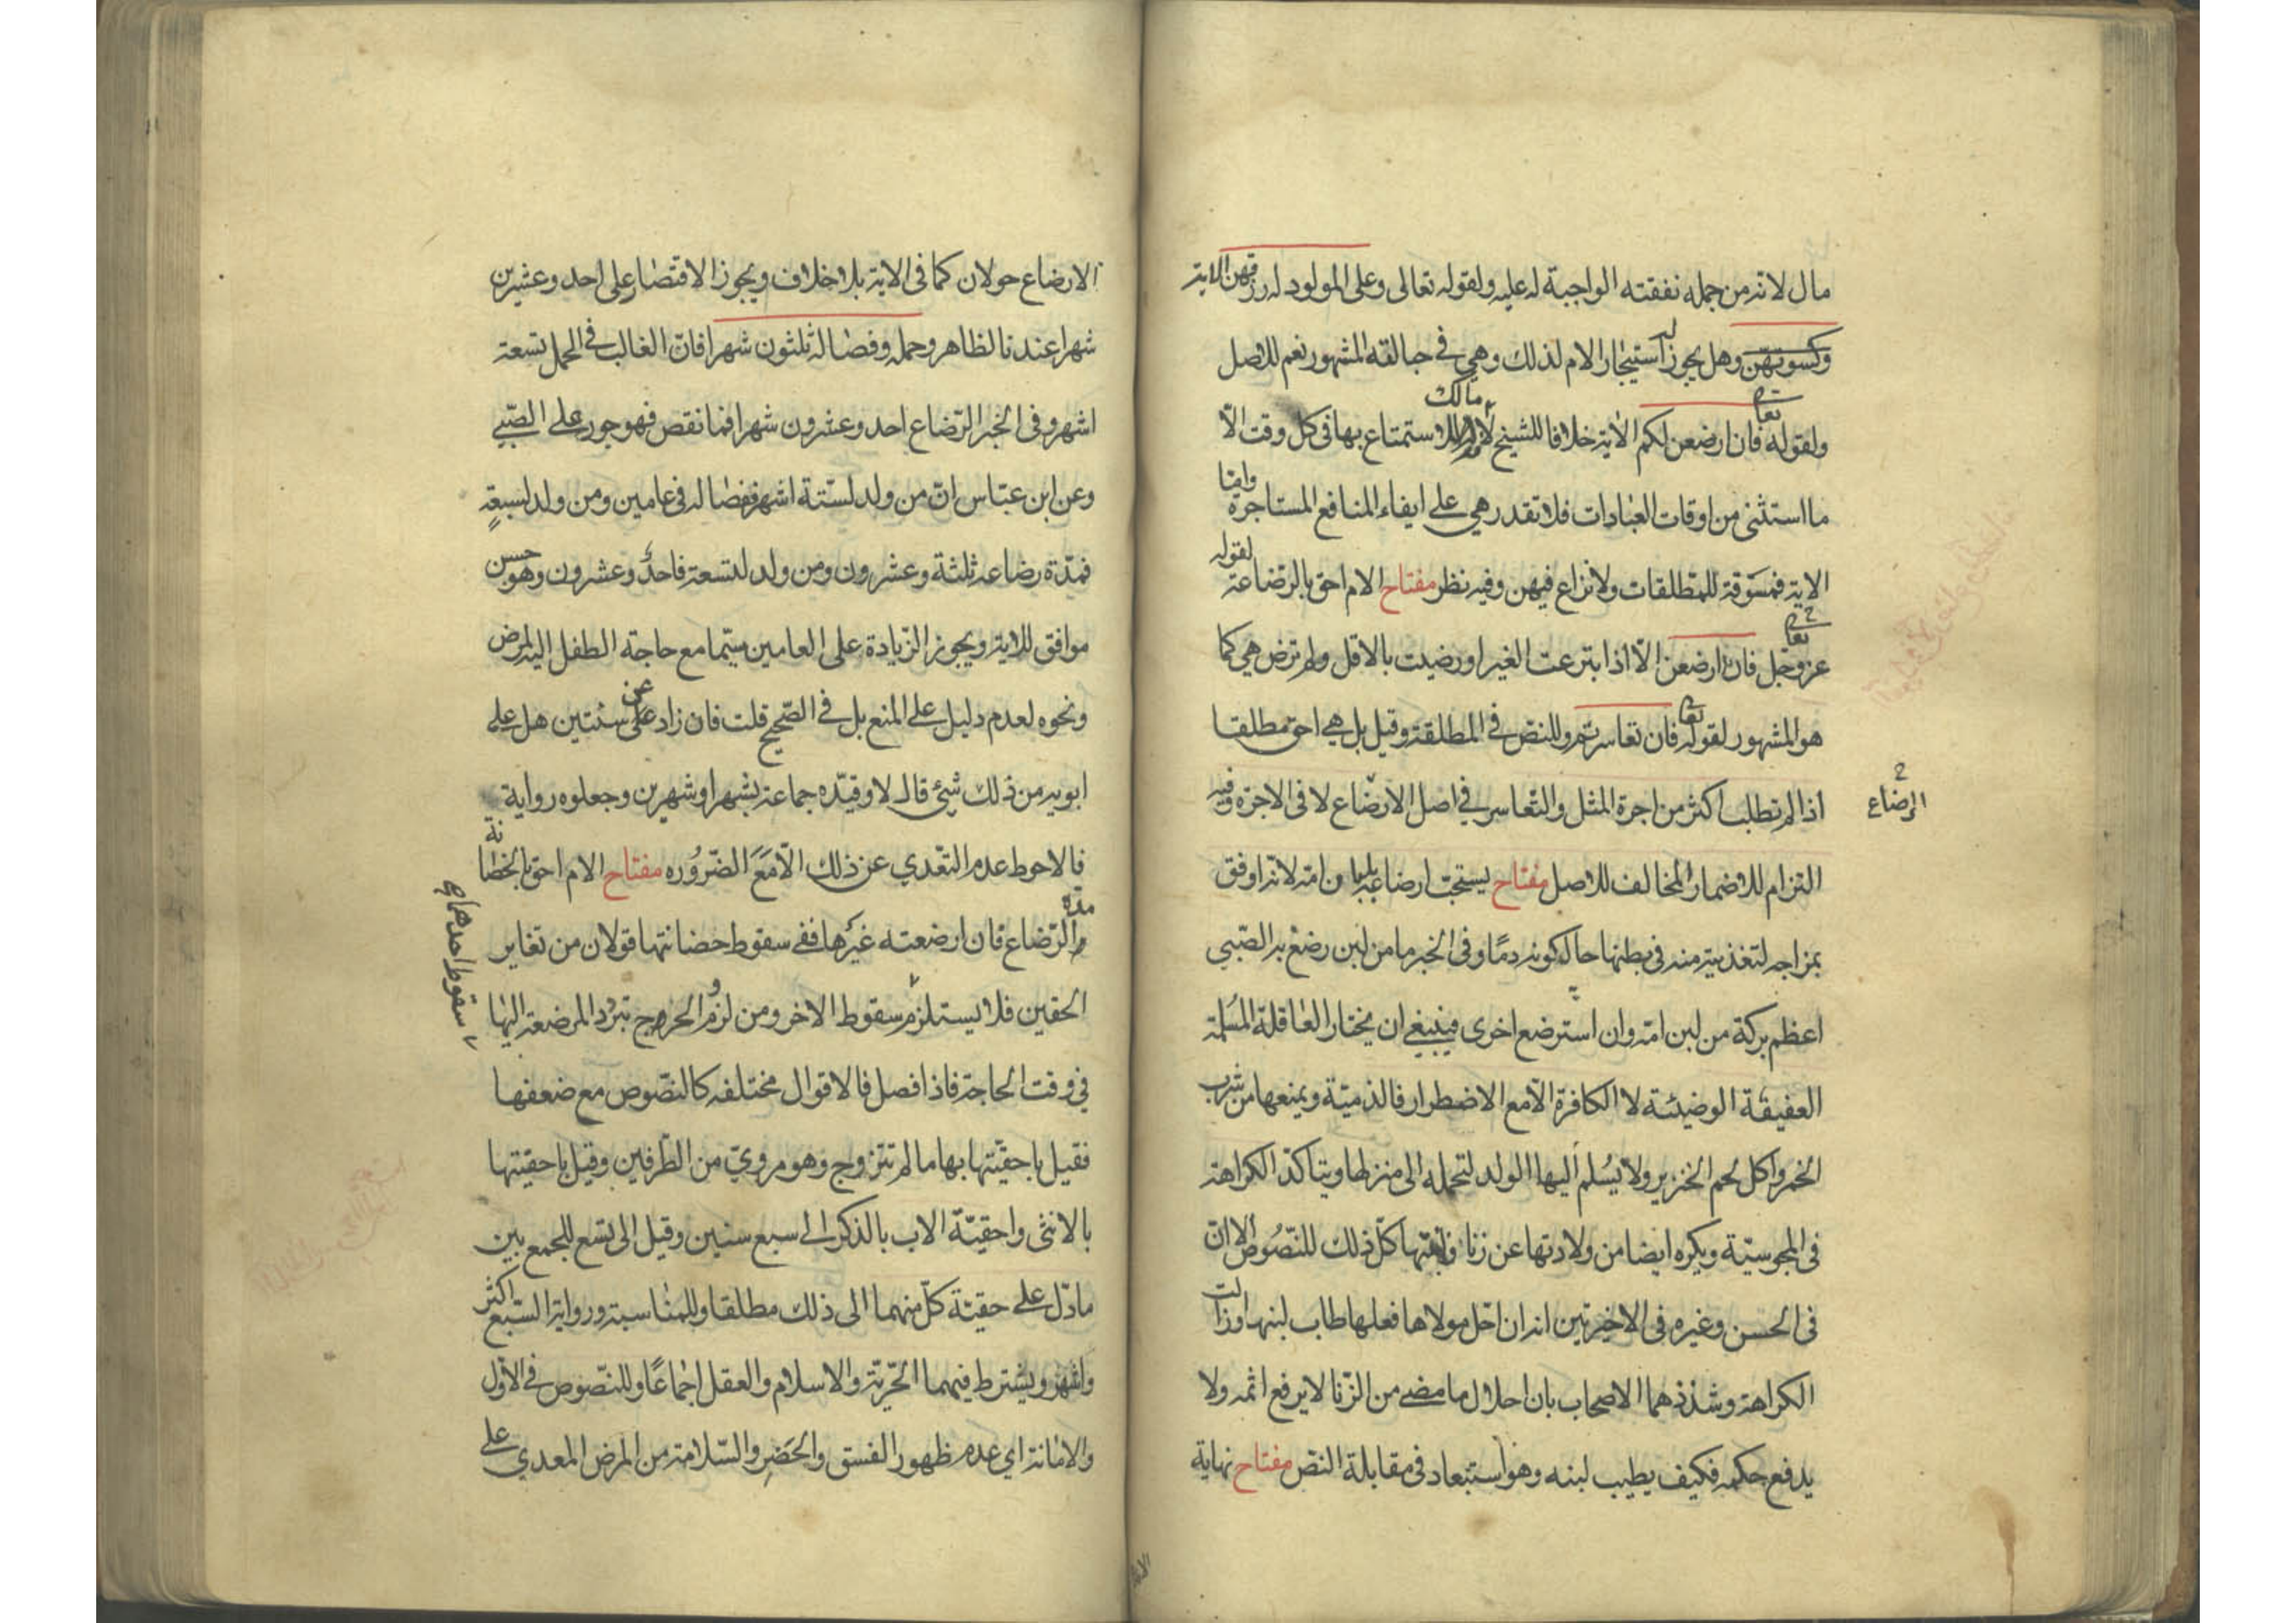 مال لانه من جمله نفقته الواجبة له عليه ولقوله تعالى وعلى المولود له رزقهن الاية
وكسوتهن وهل يجوز له استيجار الام لذلك وهي في حبالته المشهور نعم للاصل
ولقوله تعا فان ارضعن لكم الاية خلافا للشيخ لانه مالك للاستمتاع بها في كل وقت الا
ما استثنى من اوقات العبادات فلا تقدر هي على ايفاء المنافع المستاجرة واما
الاية فمسوقة للمطلقات ولا نزاع فيهن وفيه نظر مفتاح الام احق بالرضاعة لقوله
عز وجل فان ارضعن الا اذا تبرعت الغير او رضيت بالاقل ولم ترض هي كما
هو المشهور لقوله تعا فان تعاسرتم وللنص في المطلقة وقيل بل هي احق مطلقا
اذا لم تطلب اكثر من اجرة المثل والتعاسر في اصل الارضاع لا في الاجرة وفيه
الرضاع
التزام للاضمار المخالف للاصل مفتاح يستحب ارضاعه بلبان امه لانه اوفق
بمزاجه لتغذيته منه في بطنها حال كونه دما وفي الخبر ما من لبن رضع به الصبي
اعظم بركة من لبن امه وان استرضع اخرى فينبغي ان يختار العاقلة المسلمة
العفيفة الوضيئة لا الكافرة الا مع الاضطرار فالذمية ويمنعها من شرب
الخمر واكل لحم الخنزير ولا يسلم اليها الولد لتحمله الى منزلها ويتاكد الكراهة
في المجوسية ويكره ايضا من ولادتها عن زنا كل ذلك للنصوص الا ان
في الحسن وغيره في الاخيرتين انه ان احل مولاها فعلها طاب لبنها وزالت
الكراهة وشذذهما الاصحاب بان احلال ما مضى من الزنا لا يرفع اثمه ولا
يدفع حكمه فكيف يطيب لبنه وهو استبعاد في مقابلة النص مفتاح نهاية
الارضاع حولان كما في الاية بلا خلاف ويجوز الاقتصار على احد وعشرين
شهرا عندنا لظاهر وحمله وفصاله ثلثون شهرا فان الغالب في الحمل تسعة
اشهر وفي الخبر الرضاع احد وعشرون شهرا فما نقص فهو جور على الصبي
وعن ابن عباس ان من ولد لستة اشهر ففصاله في عامين ومن ولد لسبعة
فمدة رضاعه ثلثة وعشرون ومن ولد لتسعة فاحد وعشرون وهو حسن
موافق للاية ويجوز الزيادة على العامين سيما مع حاجة الطفل اليه لمرض
ونحوه لعدم دليل على المنع بل في الصحيح قلت فان زاد عن سنتين هل على
ابويه من ذلك شيئ قال لا وقيده جماعة بشهر او شهرين وجعلوه رواية
فالاحوط عدم التعدي عن ذلك الا مع الضروره مفتاح الام احق بالحضانة
مدة الرضاع فان ارضعته غيرها ففي سقوط حضانتها قولان من تغاير
سقوط احدهما
الحقين فلا يستلزم سقوط الاخر ومن لزوم الحرج بتردد المرضعة اليها
في وقت الحاجة فاذا فصل فالاقوال مختلفه كالنصوص مع ضعفها
فقيل باحقيتها بها ما لم تتزوج وهو مروي من الطرفين وقيل باحقيتها
بالانثى واحقية الاب بالذكر الى سبع سنين وقيل الى تسع للجمع بين
ما دل على حقية كل منهما الى ذلك مطلقا وللمناسبة ورواية السبع اكثر
واشهر ويشترط فيهما الحرية والاسلام والعقل اجماعا وللنصوص في الاول
والامانة اي عدم ظهور الفسق والحضر والسلامة من المرض المعدي على